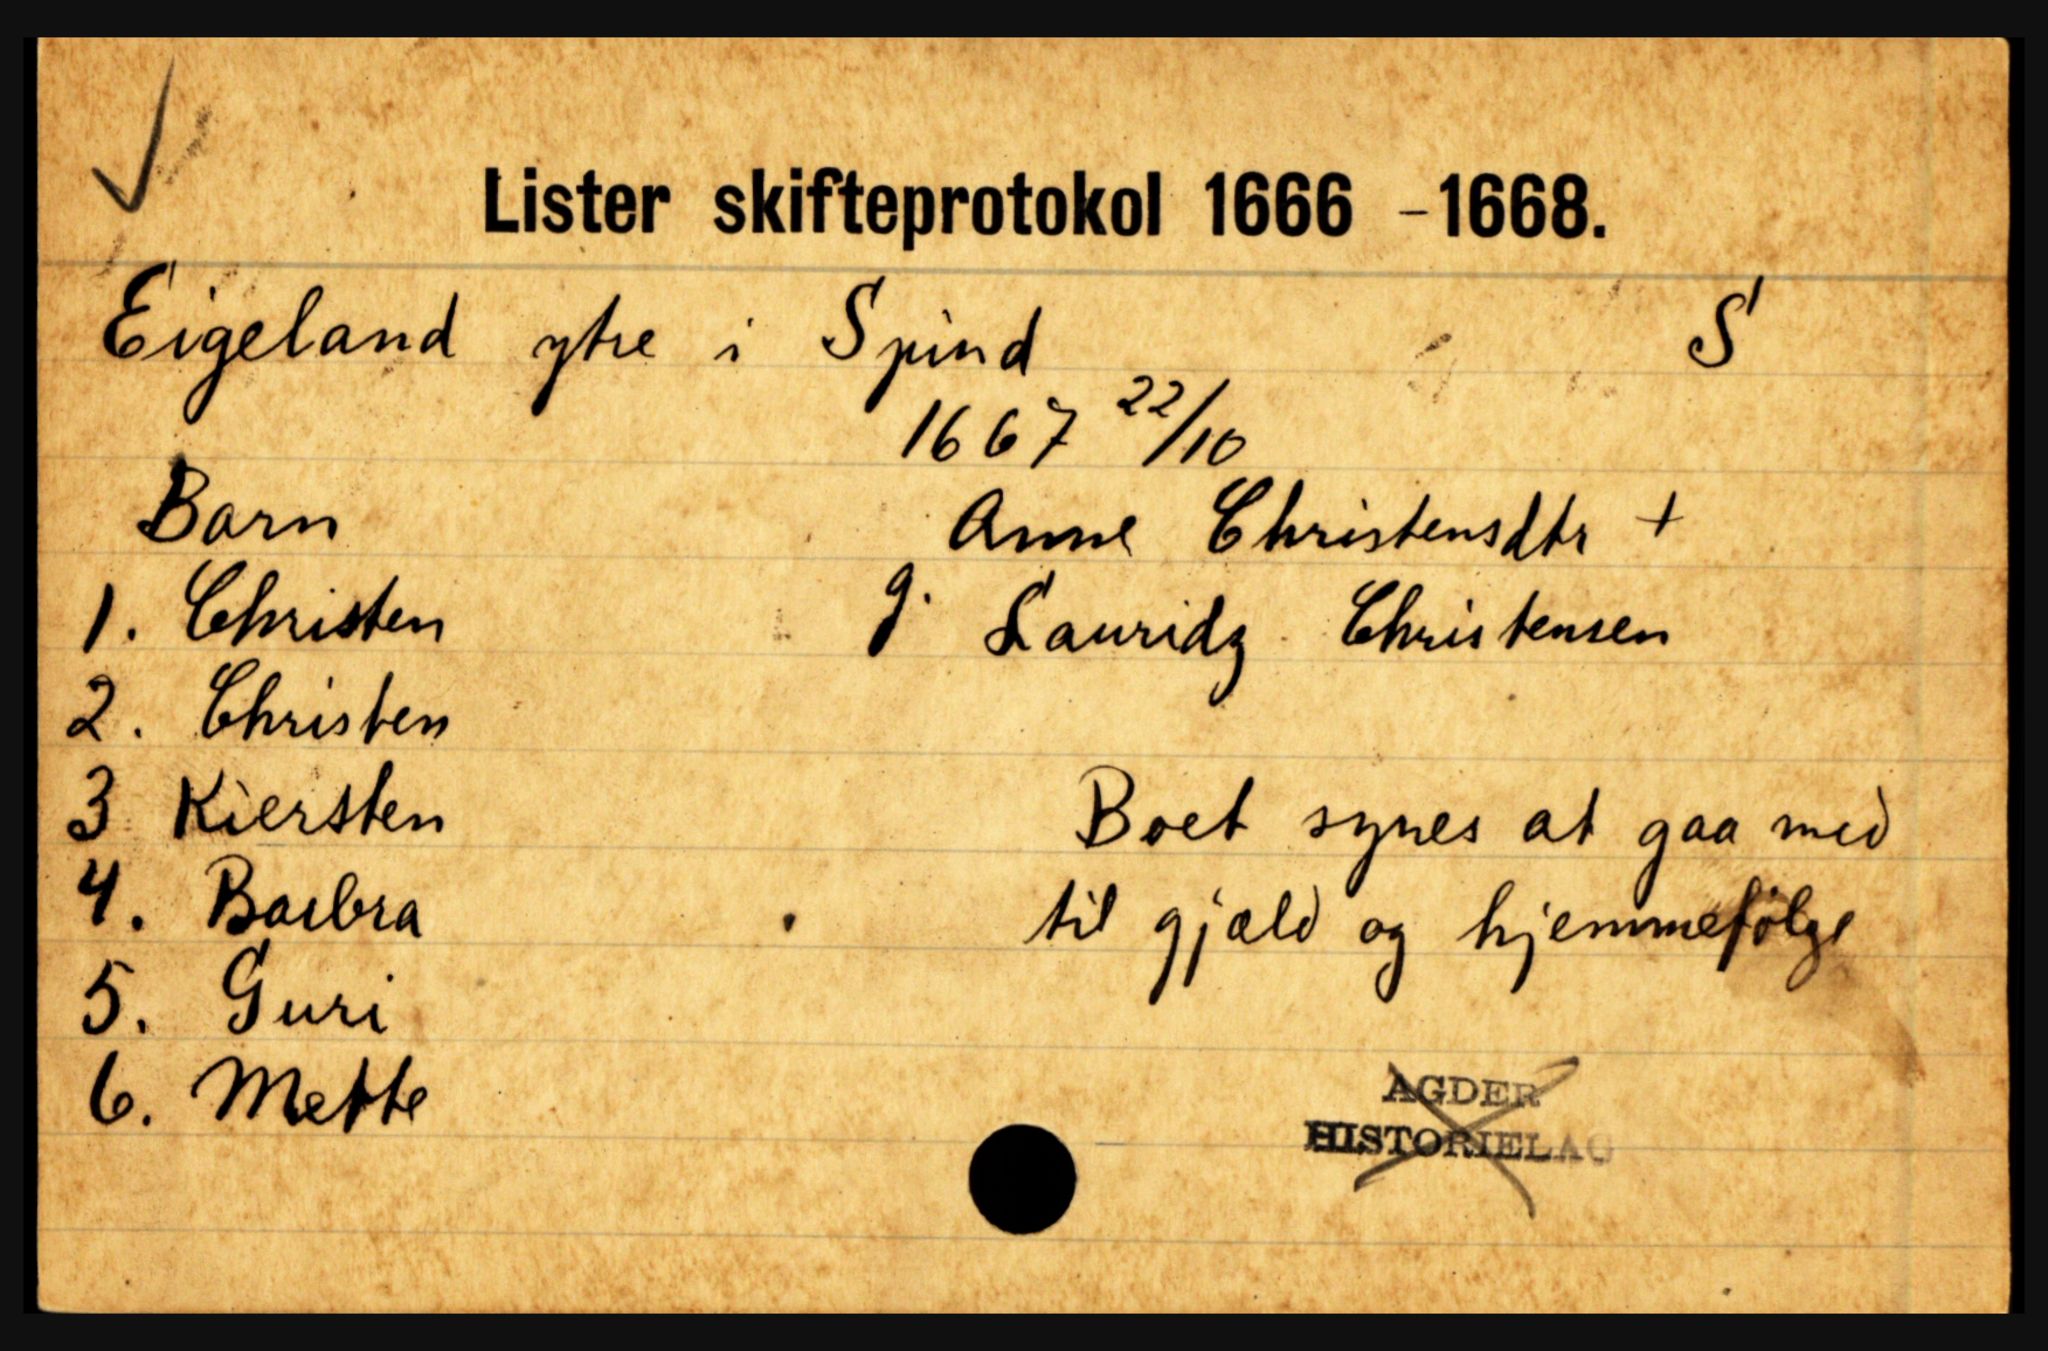 Lister skifteprotokol 1666 - 1668.
Eigeland ytre i Spind S
1667 22/10
Barn Anne Christensdtr +
1. Christen g. Lauridz Christensen
2. Christen
3 Kiersten Boet synes at gaa med
4. Barbra til gjæld og hjemmefølge
5. Guri
6. Mette
AGDER
HISTORIELAG